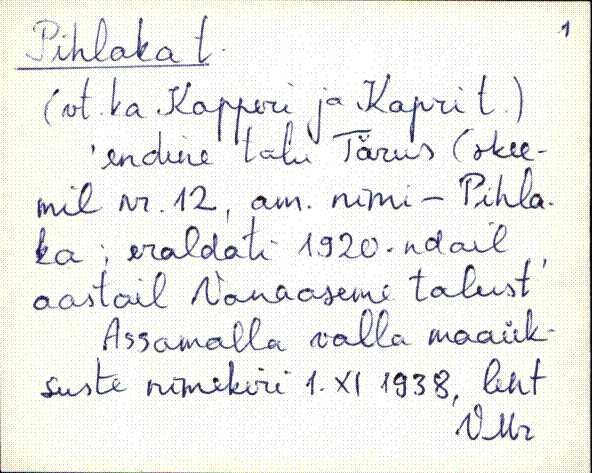 1
Pihlaka t.
(vt. ka Kapperi ja Kapri t.)
'endine talu Tärus (skee-
mil nr. 12, am. nimi – Pihla-
ka; eraldati 1920-ndail
aastail Vanaaseme talust'
Assamalla valla maaük-
suste nimekiri 1. XI 1938, leht
VMr